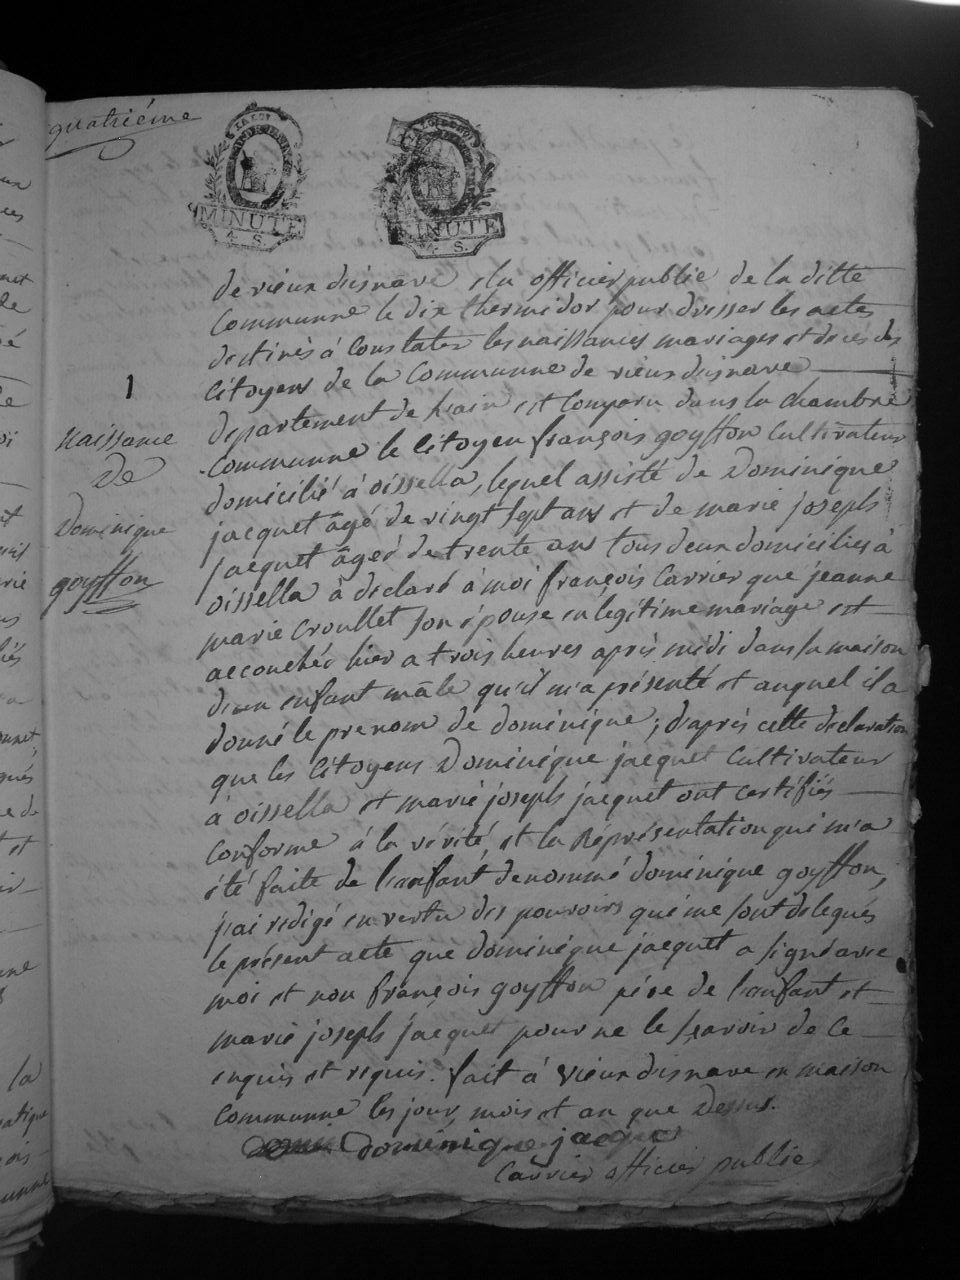 quatriéme
MINUTE
4. S.
MINUTE
4. S.
de vieux disnave elu officier public de la ditte
Communne le dix thermidor pour dresser les actes
destinés à Constater les naissances mariages et décés des
Citoyens de la Communne de vieux disnave
departement de lain est Comparu dans la chambre
Communne le Citoyen françois goyffon Cultivateur
domicilié à oissella, lequel assisté de Dominique
jacquet âgé de vingt sept ans et de marie joseph
jacquet âgeé de trente ans tous deux domicilies à
oissella à declaré à moi françois Carrier que jeanne
marie Croullet son épouse en légitime mariage est
accouchée hier a trois heures après midi dans sa maison
d'un enfant mâle qu'il m'a présenté et auquel il a
donné le prenom de dominique ; d'après cette declaration
que les Citoyens Dominique jacquet Cultivateur
à oissella et marie joseph jacquet ont certifiés
Conforme à la vérité et la Représentation qui m'a
été faite de l'anfant dénommé dominique goyffon,
j'ai redigé en vertu des pouvoirs qui me sont delegués
le présent acte que dominique jacquet a signé avec
moi et non françois goyffon pére de l'anfant et
marie joseph jacquet pour ne le sçavoir de ce
enquis et requis. fait à vieux disnave en maison
Communne les jour, mois et an que Dessus.
Dominique jacquet
Carrier officier public
1
Naissance
De
Dominique
goyffon